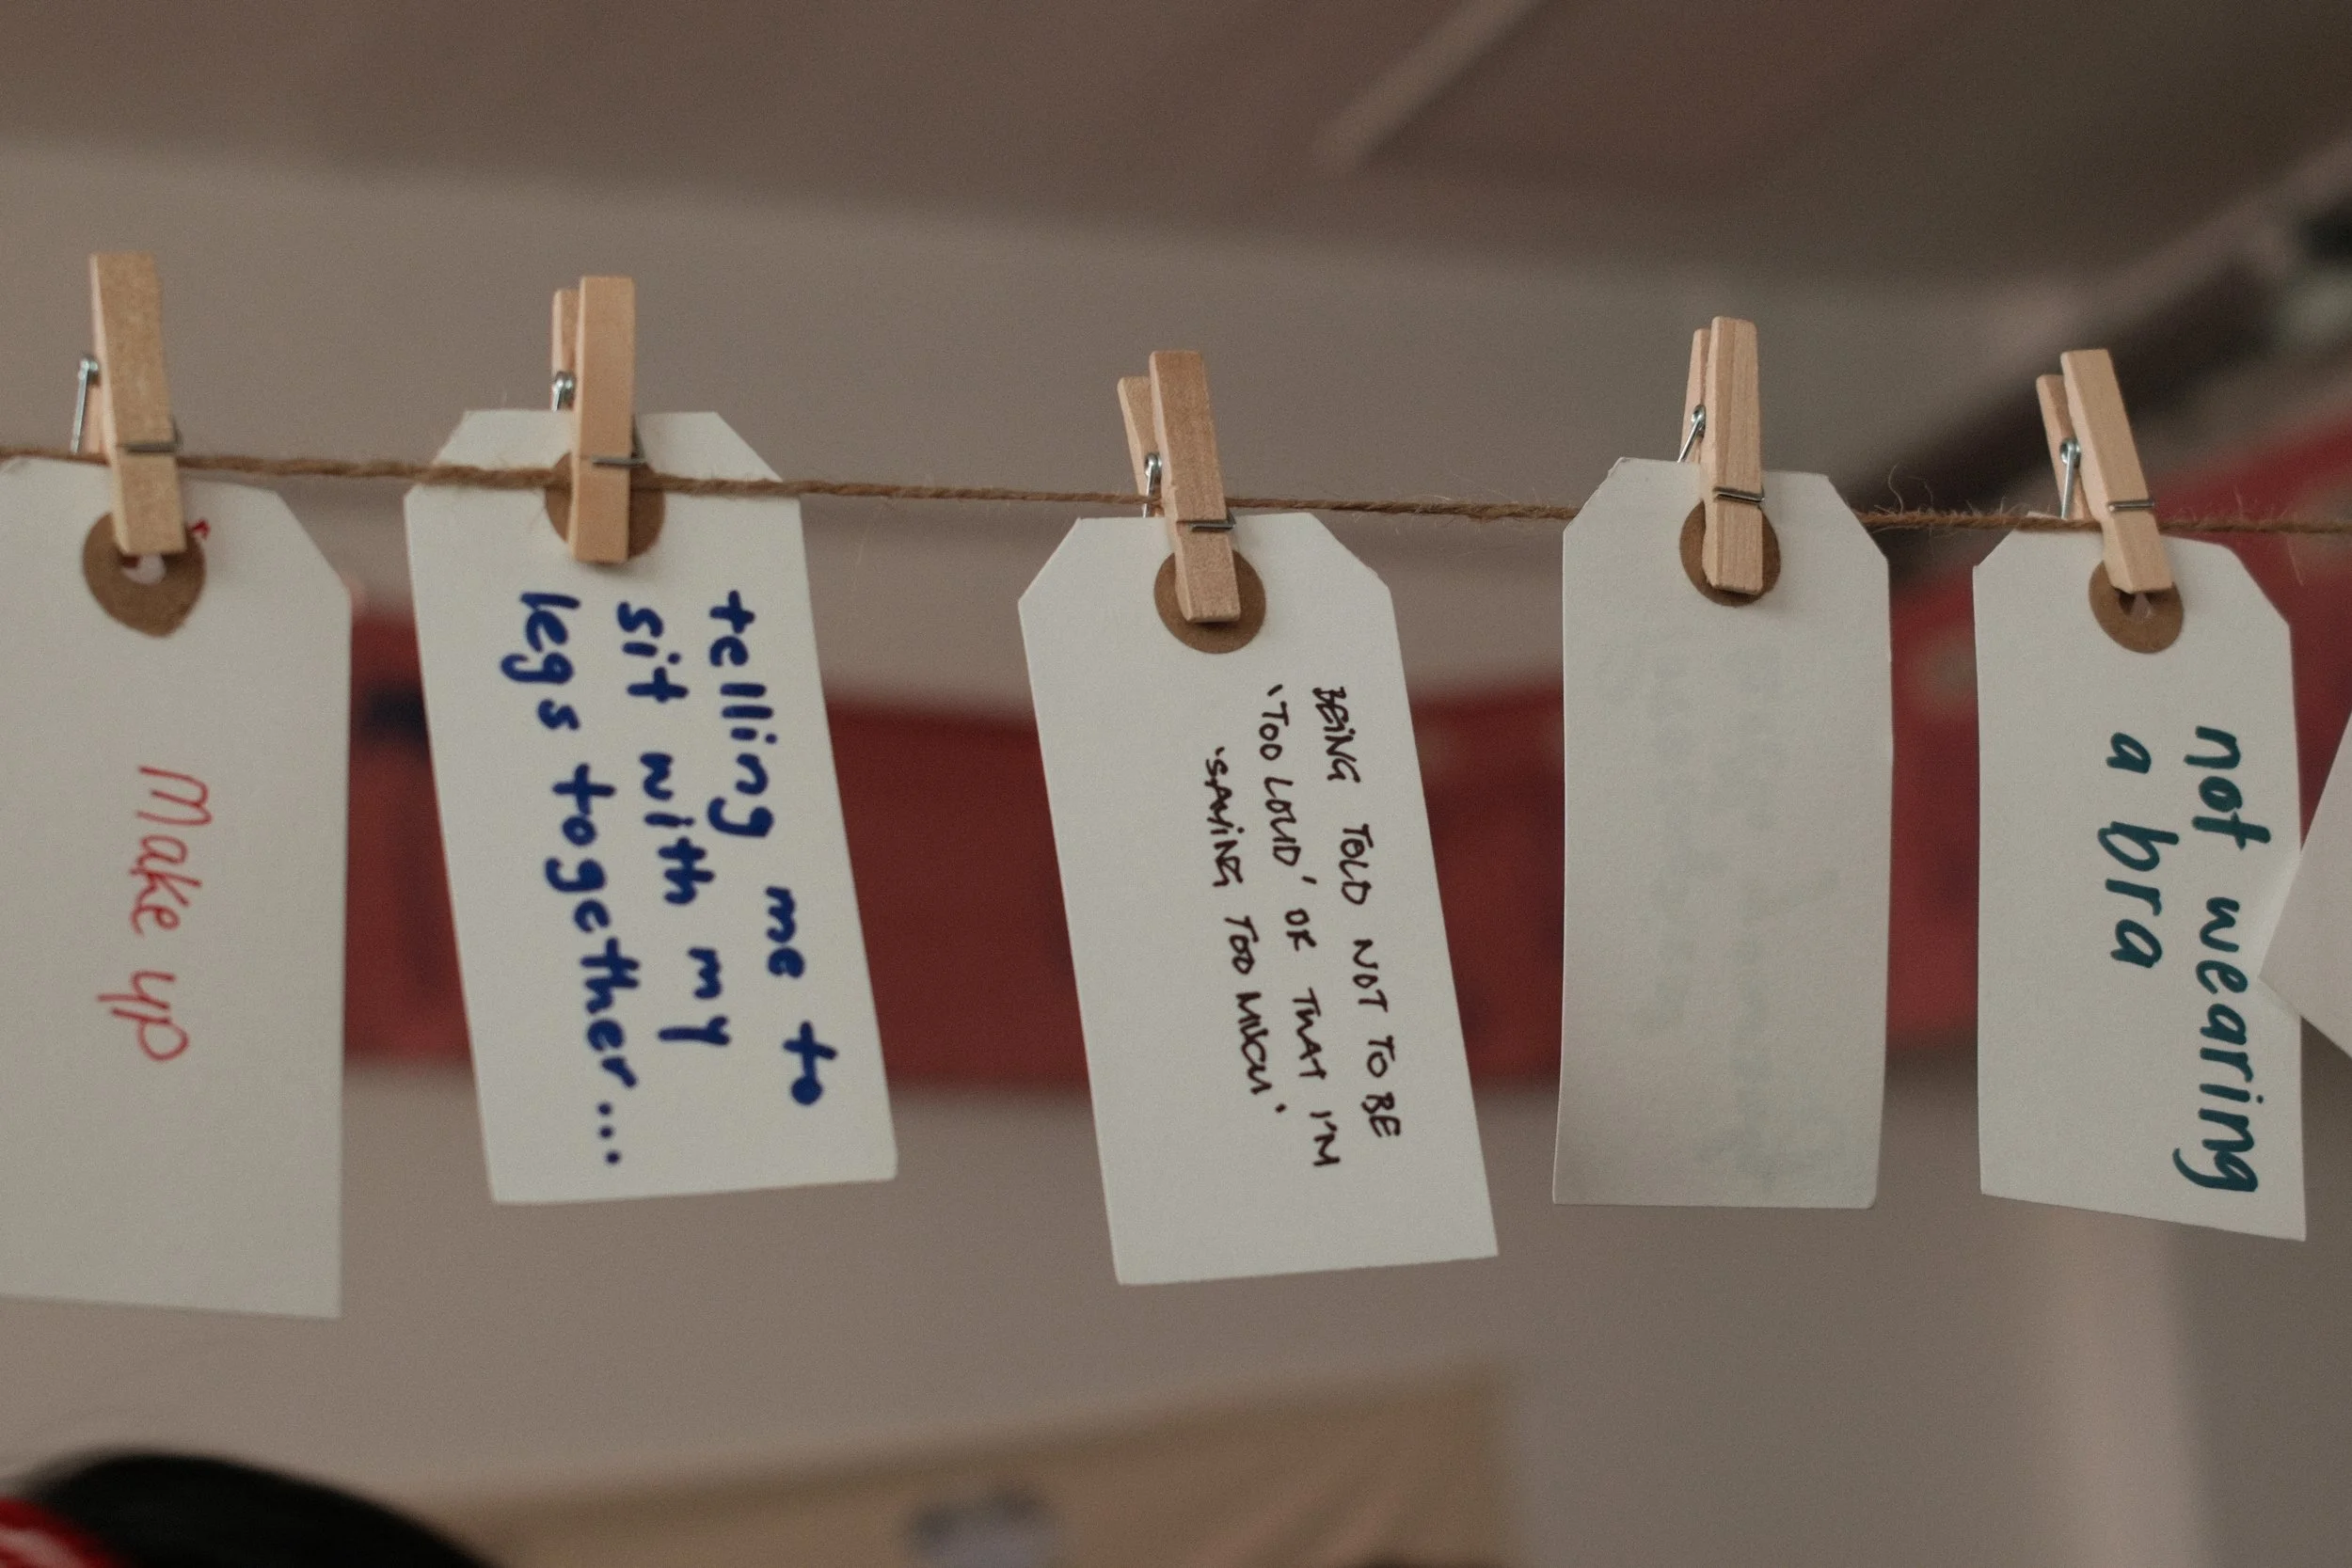 Make up
telling me to
sit with my
legs together...
BEING TOLD NOT TO BE
'TOO LOUD' OR THAT I'M
'SAYING TOO MUCH'
not wearing
a bra